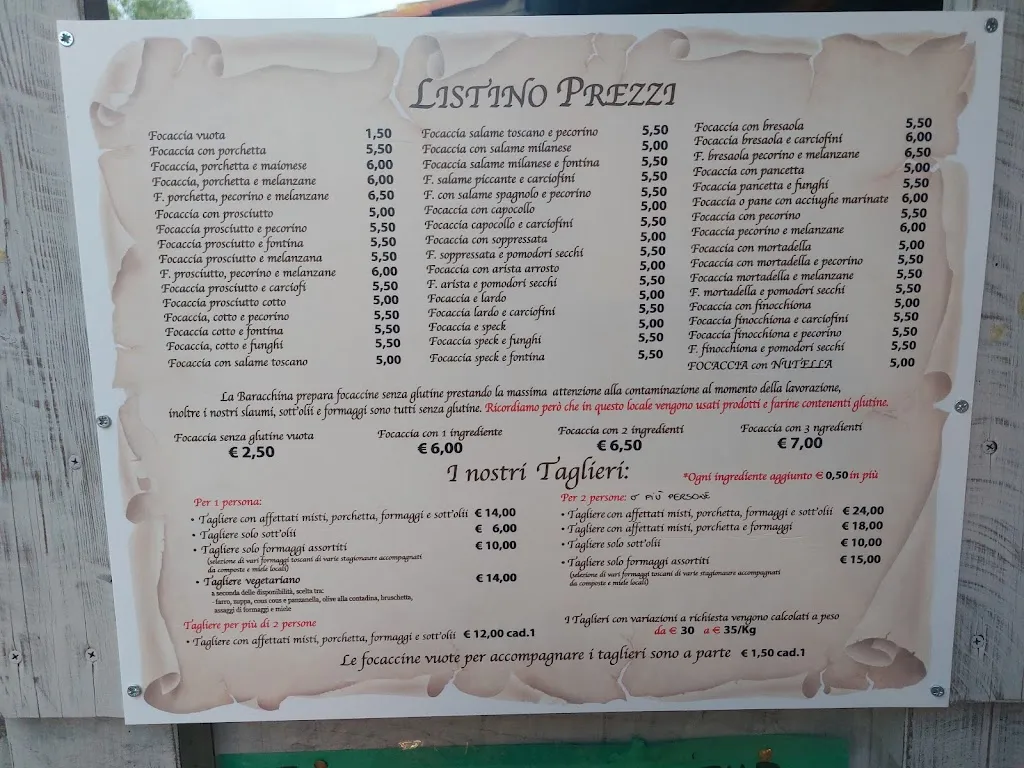 LISTINO PREZZI
Focaccia vuota 1,50
Focaccia con porchetta 5,50
Focaccia, porchetta e maionese 6,00
Focaccia, porchetta e melanzane 6,00
F. porchetta, pecorino e melanzane 6,50
Focaccia con prosciutto 5,00
Focaccia prosciutto e pecorino 5,50
Focaccia prosciutto e fontina 5,50
Focaccia prosciutto e melanzana 5,50
F. prosciutto, pecorino e melanzane 6,00
Focaccia prosciutto e carciofi 5,50
Focaccia prosciutto cotto 5,00
Focaccia, cotto e pecorino 5,50
Focaccia cotto e fontina 5,50
Focaccia, cotto e funghi 5,50
Focaccia con salame toscano 5,00
Focaccia salame toscano e pecorino 5,50
Focaccia con salame milanese 5,00
Focaccia salame milanese e fontina 5,50
F. salame piccante e carciofini 5,50
F. con salame spagnolo e pecorino 5,50
Focaccia con capocollo 5,00
Focaccia capocollo e carciofini 5,50
Focaccia con soppressata 5,00
F. soppressata e pomodori secchi 5,50
Focaccia con arista arrosto 5,00
F. arista e pomodori secchi 5,50
Focaccia e lardo 5,00
Focaccia lardo e carciofini 5,50
Focaccia e speck 5,00
Focaccia speck e funghi 5,50
Focaccia speck e fontina 5,50
Focaccia con bresaola 5,50
Focaccia bresaola e carciofini 6,00
F. bresaola pecorino e melanzane 6,50
Focaccia con pancetta 5,00
Focaccia pancetta e funghi 5,50
Focaccia o pane con acciughe marinate 6,00
Focaccia con pecorino 5,50
Focaccia pecorino e melanzane 6,00
Focaccia con mortadella 5,00
Focaccia con mortadella e pecorino 5,50
Focaccia mortadella e melanzane 5,50
F. mortadella e pomodori secchi 5,50
Focaccia con finocchiona 5,00
Focaccia finocchiona e carciofini 5,50
Focaccia finocchiona e pecorino 5,50
F. finocchiona e pomodori secchi 5,50
FOCACCIA con NUTELLA 5,00
La Baracchina prepara focaccine senza glutine prestando la massima attenzione alla contaminazione al momento della lavorazione,
inoltre i nostri slaumi, sott'olii e formaggi sono tutti senza glutine. Ricordiamo però che in questo locale vengono usati prodotti e farine contenenti glutine.
Focaccia senza glutine vuota
€ 2,50
Focaccia con 1 ingrediente
€ 6,00
Focaccia con 2 ingredienti
€ 6,50
Focaccia con 3 ngredienti
€ 7,00
I nostri Taglieri:
*Ogni ingrediente aggiunto € 0,50 in più
Per 1 persona:
• Tagliere con affettati misti, porchetta, formaggi e sott'olii € 14,00
• Tagliere solo sott'olii € 6,00
• Tagliere solo formaggi assortiti € 10,00
(selezione di vari formaggi toscani di varie stagionaure accompagnati
da composte e miele locali)
• Tagliere vegetariano € 14,00
a seconda delle disponibilità, scelta tra:
- farro, zuppa, cous cous e panzanella, olive alla contadina, bruschetta,
assaggi di formaggi e miele
Tagliere per più di 2 persone
• Tagliere con affettati misti, porchetta, formaggi e sott'olii € 12,00 cad.1
Per 2 persone: O PIÙ PERSONE
• Tagliere con affettati misti, porchetta, formaggi e sott'olii € 24,00
• Tagliere con affettati misti, porchetta e formaggi € 18,00
• Tagliere solo sott'olii € 10,00
• Tagliere solo formaggi assortiti € 15,00
(selezione di vari formaggi toscani di varie stagionaure accompagnati
da composte e miele locali)
I Taglieri con variazioni a richiesta vengono calcolati a peso
da € 30 a € 35/Kg
Le focaccine vuote per accompagnare i taglieri sono a parte € 1,50 cad.1